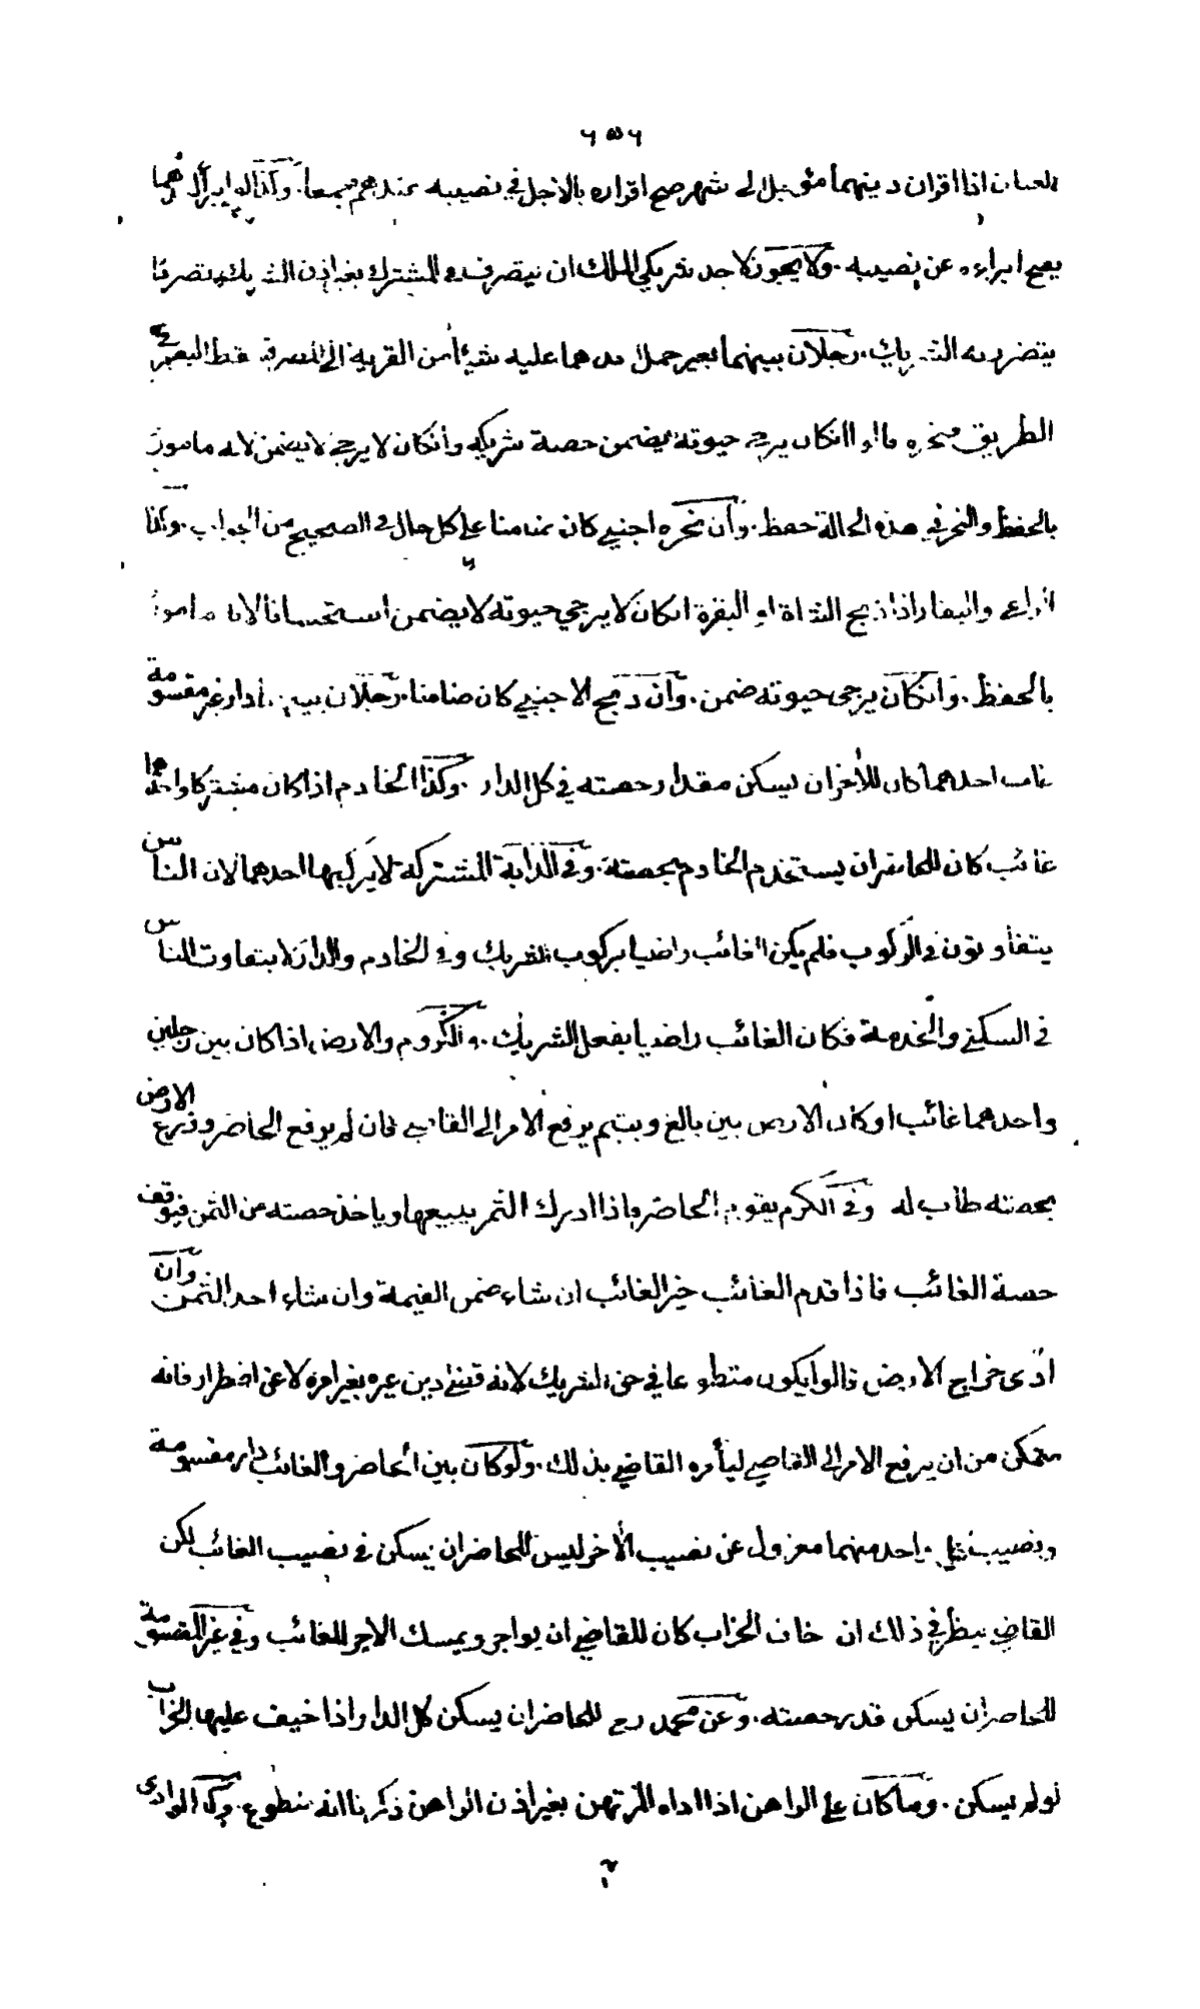 ٦٥٦
العنان اذا اقران دينهما مؤجل الى شهر صح اقراره بالاجل في نصيبه عندهم جميعا. وكذا لو ابرأ احدهما
يصح ابراءه عن نصيبه. ولا يجوز لاحد شريكي الملك ان يتصرف في المشترك بغير اذن الشريك تصرفا
يتضرر به الشريك. رجلان بينهما بعير حمل احدهما عليه شيئا من القرية الى المصر فسقط البعير في
الطريق فنحره قالوا انكان يرجى حيوته يضمن حصة شريكه وانكان لا يرجى لا يضمن لانه مامور
بالحفظ والنحر في هذه الحالة حفظ. وان نحره اجنبي كان ضامنا على كل حال في الصحيح من الجواب. وكذا
الراعي والبقار اذا ذبح الشاة او البقرة انكان لا يرجى حيوته لا يضمن استحسانا لانه مامور
بالحفظ. وانكان يرجى حيوته ضمن. وان ذبح الاجنبي كان ضامنا. رجلان بينهما دار غير مقسومة
غاب احدهما كان للآخر ان يسكن مقدار حصته في كل الدار. وكذا الخادم اذا كان مشتركا واحدهما
غائب كان للحاضر ان يستخدم الخادم بحصته. وفي الدابة المشتركة لا يركبها احدهما لان الناس
يتفاوتون في الركوب فلم يكن الغائب راضيا بركوب الشريك وفي الخادم والدار لا يتفاوت الناس
في السكنى والخدمة فكان الغائب راضيا بفعل الشريك. والكروم والارض اذا كان بين رجلين
واحدهما غائب او كان الارض بين بالغ ويتيم يرفع الامر الى القاضي فان لم يرفع الحاضر وزرع الارض
بحصته طاب له وفي الكرم يقوم الحاضر فاذا ادرك الثمر يبيعها وياخذ حصته من الثمن فيوقف
حصة الغائب فاذا قدم الغائب خير الغائب ان شاء ضمن القيمة وان شاء اخذ الثمن وان
ادى خراج الارض قالوا يكون متطوعا في حق الشريك لانه قضى دين غيره بغير امره لا عن اضطرار فانه
متمكن من ان يرفع الامر الى القاضي ليأمره القاضي بذلك. ولو كان بين الحاضر والغائب دار مقسومة
ونصيب كل واحد منهما معزول عن نصيب الآخر ليس للحاضر ان يسكن في نصيب الغائب لكن
القاضي ينظر في ذلك ان خاف الخراب كان للقاضي ان يواجر ويمسك الاجر للغائب وفي غير المقسومة
للحاضر ان يسكن قدر حصته. وعن محمد رح للحاضر ان يسكن كل الدار اذا خيف عليها الخراب
لو لم يسكن. وما كان على الراهن اذا اداه المرتهن بغير اذن الراهن ذكرنا انه متطوع. وكذا لو ادى